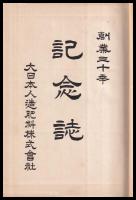 創業三十年
記念誌
大日本人造肥料株式會社